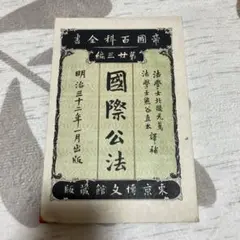 帝國百科全書
第廿三編
法學士北條元篤
法學士熊谷直太 譯補
國際公法
明治三十二年一月出版
東京博文館藏版